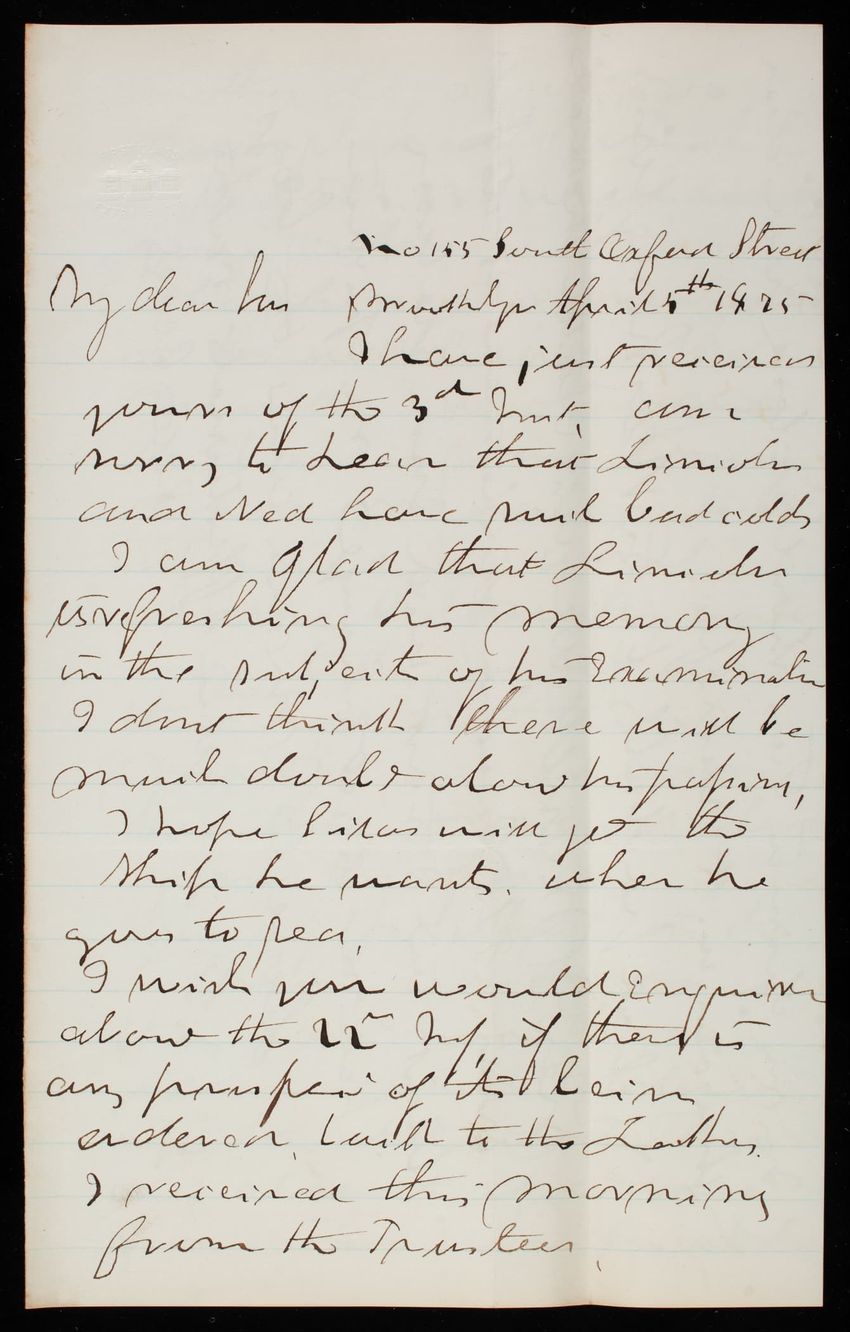 No 155 South Oxford Street
My dear Son Brooklyn April 5th 1875
I have just received
yours of the 3d Inst, am
sorry to hear that Lincoln
and Ned have such bad colds
I am glad that Lincoln
is refreshing his memory
in the subjects of his Examination
I dont think there will be
much doubt about his passing,
I hope Silas will get the
ship he wants, when he
goes to sea,
I wish you would Enquire
about the 22d Inf, if there is
any prospect of its being
ordered back to the Lakes.
I received this morning
from the Trustees,